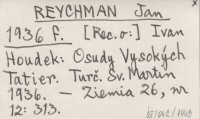 REYCHMAN Jan
1936 f. [Rec. o:] Ivan
Houdek: Osudy Vysokých
Tatier. Turč. Sv. Martin
1936. — Ziemia 26, nr
12: 313.